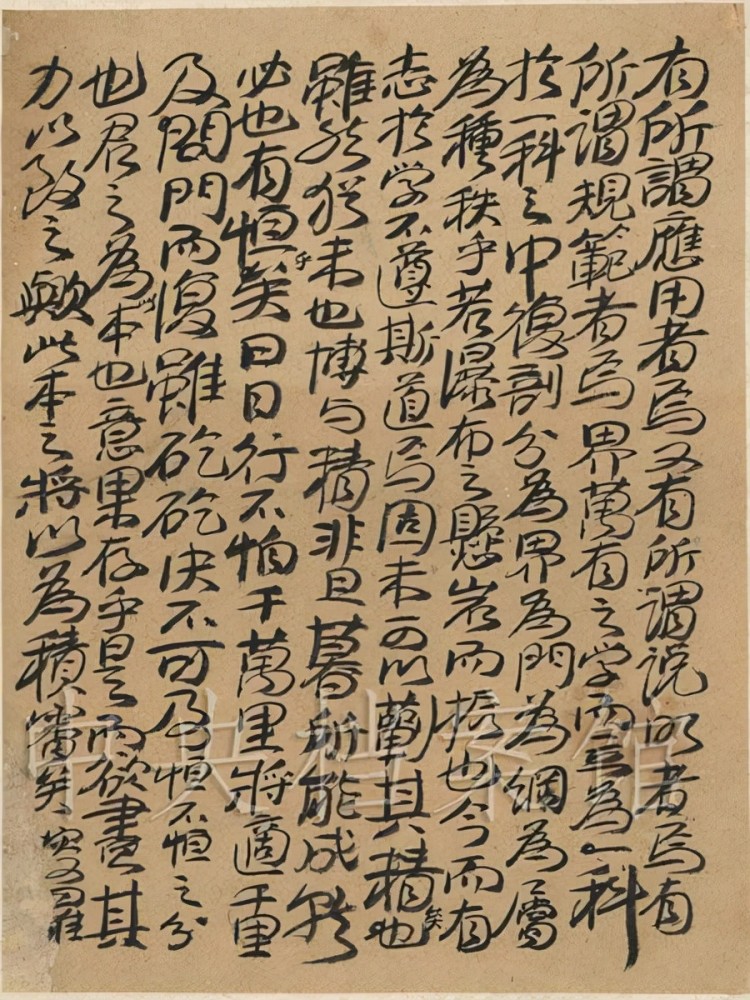 有所謂應用者焉又有所謂说明者焉有
所謂規範者焉界萬有之学而立為一科
於一科之中復剖分為界為門為綱為屬
為種秩乎若瀑布之懸岩而振也今而有
志於学不遵斯道焉固未可以蘄其精也矣
雖然猶未也博与精非旦暮所能成就
必也有恒乎矣日日行不怕千萬里將適千里
及閭門而復雖矻矻决不可及恒不恒之分
也君之為此本也意果存乎是而欲盡其
力以致之歟此本之將以為積矣
中央档案馆